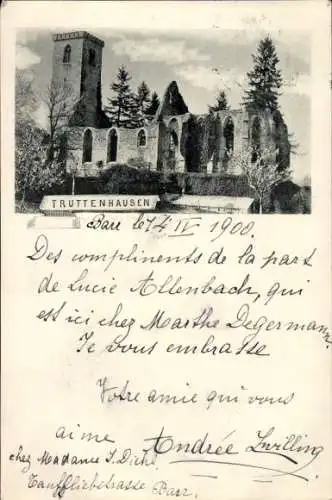 TRUTTENHAUSEN
Barr le 14 IV 1900.
Des compliments de la part
de Lucie Allenbach, qui
est ici chez Marthe Degermann.
Je vous embrasse
Votre amie qui vous
aime Andrée Zwilling
chez Madame S. Dieke
Taufliebstrasse Barr.